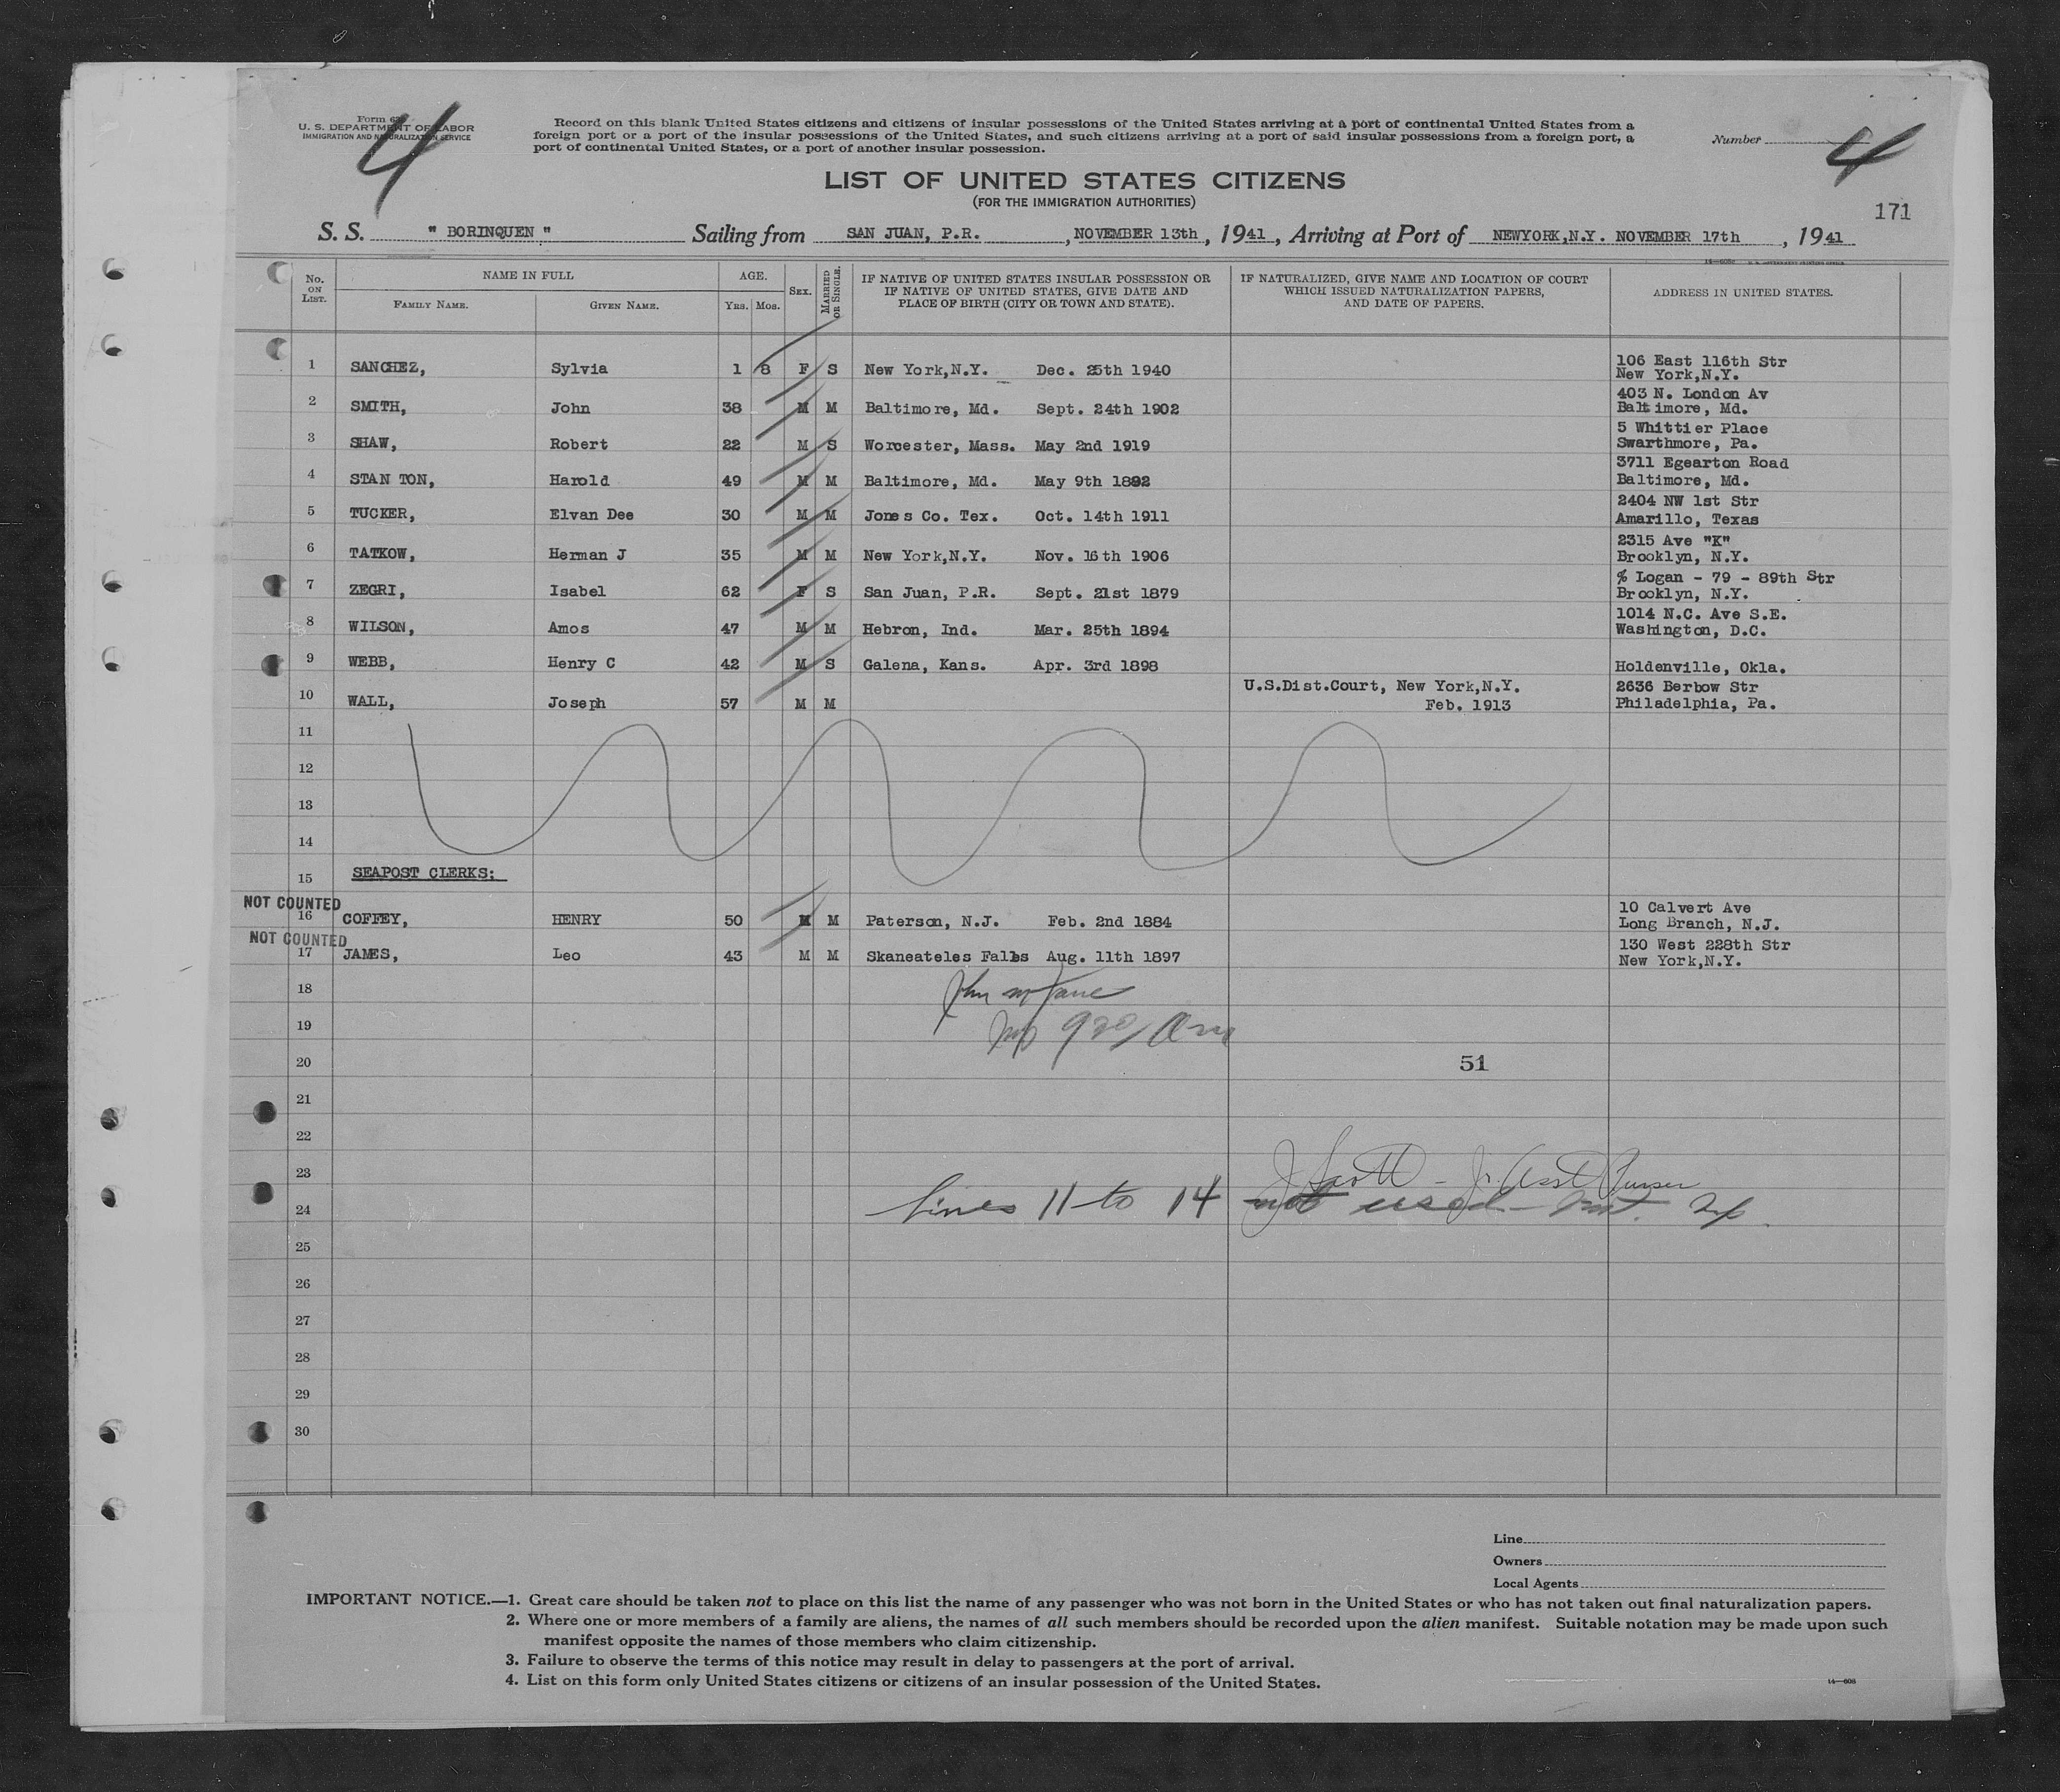 Form 630
U. S. DEPARTMENT OF LABOR
IMMIGRATION AND NATURALIZATION SERVICE
4
Record on this blank United States citizens and citizens of insular possessions of the United States arriving at a port of continental United States from a
foreign port or a port of the insular possessions of the United States, and such citizens arriving at a port of said insular possessions from a foreign port, a
port of continental United States, or a port of another insular possession.
Number
4
171
LIST OF UNITED STATES CITIZENS
(FOR THE IMMIGRATION AUTHORITIES)
S. S. " BORINQUEN " Sailing from SAN JUAN, P.R. , NOVEMBER 13th , 1941, Arriving at Port of NEWYORK,N.Y. NOVEMBER 17th , 1941
No. ON LIST. NAME IN FULL AGE. SEX. MARRIED OR SINGLE. IF NATIVE OF UNITED STATES INSULAR POSSESSION OR IF NATIVE OF UNITED STATES, GIVE DATE AND PLACE OF BIRTH (CITY OR TOWN AND STATE). IF NATURALIZED, GIVE NAME AND LOCATION OF COURT WHICH ISSUED NATURALIZATION PAPERS, AND DATE OF PAPERS. ADDRESS IN UNITED STATES.
FAMILY NAME. GIVEN NAME. YRS. MOS.
1 SANCHEZ, Sylvia 1 8 F S New York,N.Y. Dec. 25th 1940 106 East 116th Str
New York,N.Y.
2 SMITH, John 38 M M Baltimore, Md. Sept. 24th 1902 403 N. London Av
Baltimore, Md.
3 SHAW, Robert 22 M S Worcester, Mass. May 2nd 1919 5 Whittier Place
Swarthmore, Pa.
4 STAN TON, Harold 49 M M Baltimore, Md. May 9th 1892 3711 Egearton Road
Baltimore, Md.
5 TUCKER, Elvan Dee 30 M M Jones Co. Tex. Oct. 14th 1911 2404 NW 1st Str
Amarillo, Texas
6 TATKOW, Herman J 35 M M New York,N.Y. Nov. 16th 1906 2315 Ave "K"
Brooklyn, N.Y.
7 ZEGRI, Isabel 62 F S San Juan, P.R. Sept. 21st 1879 % Logan - 79 - 89th Str
Brooklyn, N.Y.
8 WILSON, Amos 47 M M Hebron, Ind. Mar. 25th 1894 1014 N.C. Ave S.E.
Washington, D.C.
9 WEBB, Henry C 42 M S Galena, Kans. Apr. 3rd 1898 Holdenville, Okla.
10 WALL, Joseph 57 M M U.S.Dist.Court, New York,N.Y. 2636 Berbow Str
Feb. 1913 Philadelphia, Pa.
11
12
13
14
15 SEAPOST CLERKS:
NOT COUNTED
16 COFFEY, HENRY 50 M M Paterson, N.J. Feb. 2nd 1884 10 Calvert Ave
Long Branch, N.J.
NOT COUNTED
17 JAMES, Leo 43 M M Skaneateles Falls Aug. 11th 1897 130 West 228th Str
New York,N.Y.
18
19
20 51
21
22
23 J Scott - Jr. Asst Purser
24 Lines 11 to 14 not used
25
26
27
28
29
30
Line
Owners
Local Agents
IMPORTANT NOTICE.—1. Great care should be taken not to place on this list the name of any passenger who was not born in the United States or who has not taken out final naturalization papers.
2. Where one or more members of a family are aliens, the names of all such members should be recorded upon the alien manifest. Suitable notation may be made upon such
manifest opposite the names of those members who claim citizenship.
3. Failure to observe the terms of this notice may result in delay to passengers at the port of arrival.
4. List on this form only United States citizens or citizens of an insular possession of the United States.
14—608